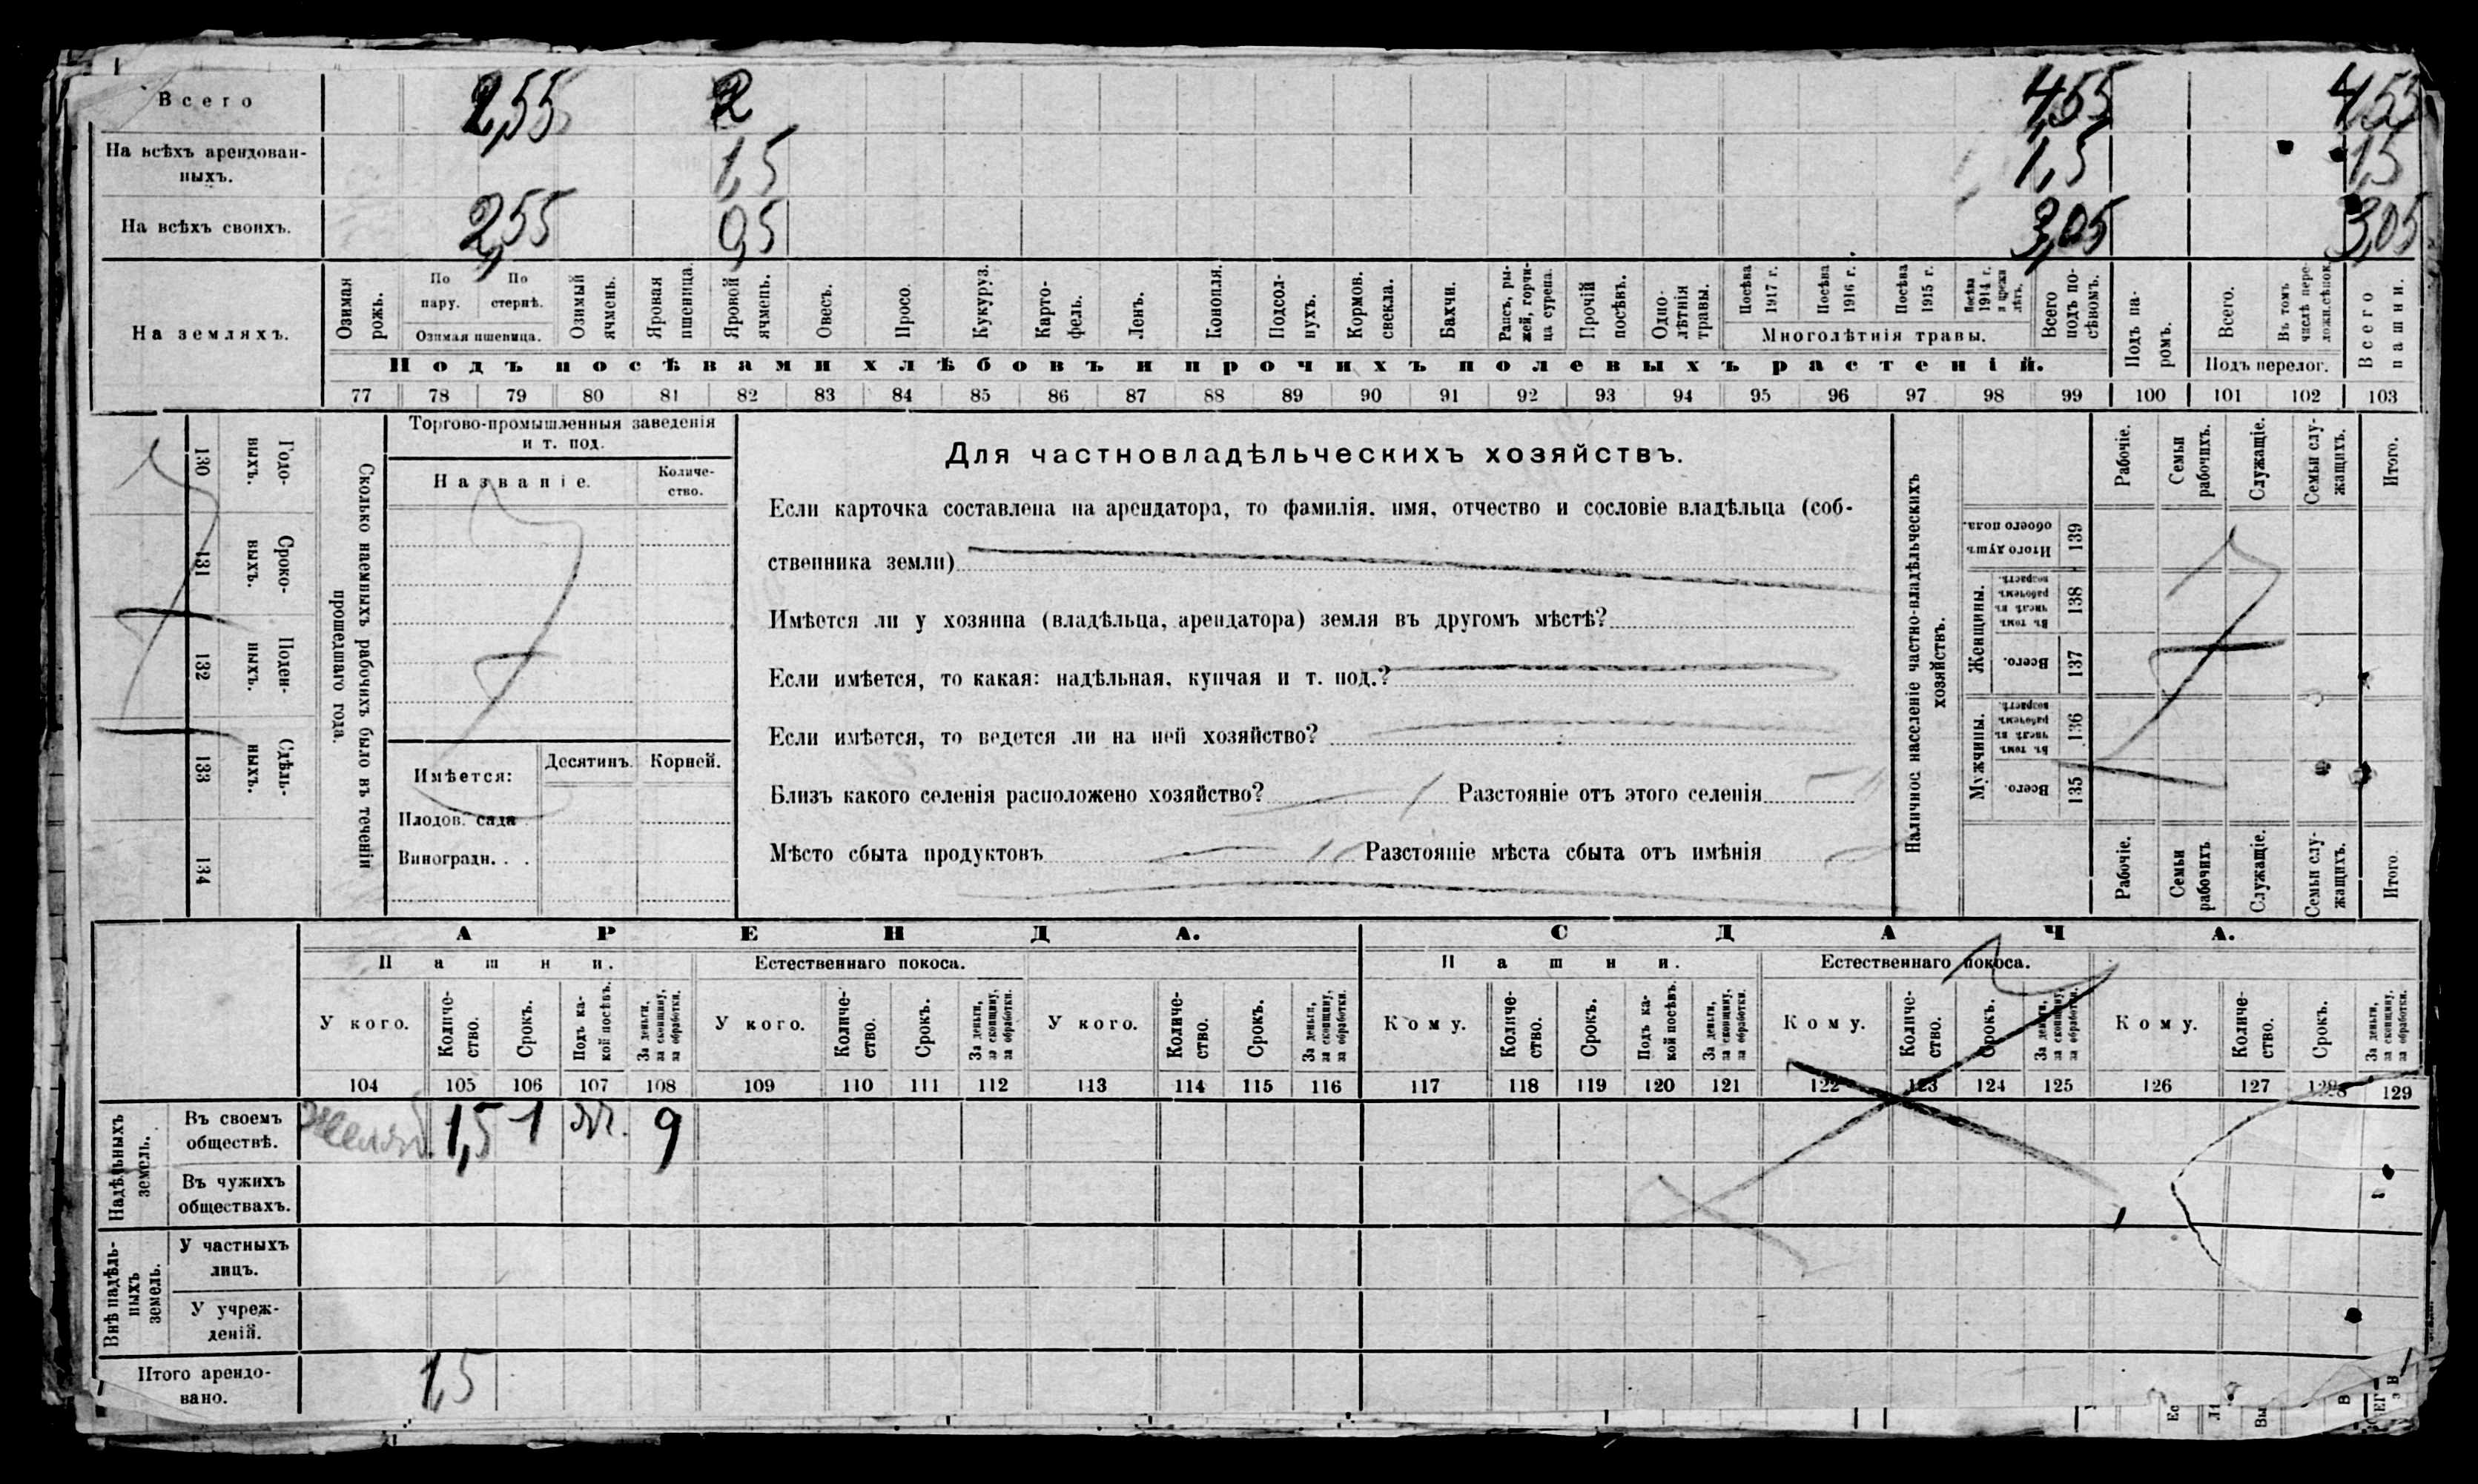 Всего 2,55 2 4,55 4,55
На всѣхъ арендован-
ныхъ. 1,5 1,5 1,5
На всѣхъ своихъ. 2,55 0,5 3,05 3,05
На земляхъ.
Озимая рожь.
По пару.
По стернѣ.
Озимая пшеница.
Озимый ячмень.
Яровая пшеница.
Яровой ячмень.
Овесъ.
Просо.
Кукуруз.
Карто-
фель.
Ленъ.
Конопля.
Подсол-
нухъ.
Кормов. свекла.
Бахчи.
Рапсъ, ры-
жей, горчи-
ца сурепа.
Прочій посѣвъ.
Одно-
лѣтнія травы.
Посѣва 1917 г.
Посѣва 1916 г.
Посѣва 1915 г.
Посѣва 1914 г. и прежн лѣтъ.
Многолѣтнія травы.
Всего подъ по-
сѣвомъ.
Подъ па-
ромъ.
Всего.
Въ томъ числѣ пере-
ложн.сѣнок.
Подъ перелог.
Всего пашни.
Подъ посѣвами хлѣбовъ и прочихъ полевыхъ растеній.
77 78 79 80 81 82 83 84 85 86 87 88 89 90 91 92 93 94 95 96 97 98 99 100 101 102 103
130 Годо-
выхъ.
131 Сроко-
выхъ.
132 Поден-
ныхъ.
133 Сдѣль-
ныхъ.
134
Сколько наемныхъ рабочихъ было въ теченіи
прошедшаго года.
Торгово-промышленныя заведенія
и т. под.
Названіе.
Количе-
ство.
Имѣется: Десятинъ. Корней.
Плодов. сада
Виноградн. . .
Для частновладѣльческихъ хозяйствъ.
Если карточка составлена на арендатора, то фамилія, имя, отчество и сословіе владѣльца (соб-
ственника земли)
Имѣется ли у хозяина (владѣльца, арендатора) земля въ другомъ мѣстѣ?
Если имѣется, то какая: надѣльная, купчая и т. под.?
Если имѣется, то ведется ли на ней хозяйство?
Близъ какого селенія расположено хозяйство? Разстояніе отъ этого селенія
Мѣсто сбыта продуктовъ Разстояніе мѣста сбыта отъ имѣнія
Наличное населеніе частно-владѣльческихъ
хозяйствъ.
Рабочіе.
Семьи рабочихъ.
Служащіе.
Семьи слу-
жащихъ.
Итого.
Итого душъ обоего пола. 139
Женщины.
Въ томъ числѣ въ рабочемъ возрастѣ. 138
Всего. 137
Мужчины.
Въ томъ числѣ въ рабочемъ возрастѣ. 136
Всего. 135
Рабочіе.
Семьи рабочихъ.
Служащіе.
Семьи слу-
жащихъ.
Итого.
АРЕНДА. СДАЧА.
Пашни. Естественнаго покоса. Пашни. Естественнаго покоса.
У кого.
Количе-
ство.
Срокъ.
Подъ ка-
кой посѣвъ.
За деньги, за скопщину, за обработки.
У кого.
Количе-
ство.
Срокъ.
За деньги, за скопщину, за обработки.
У кого.
Количе-
ство.
Срокъ.
За деньги, за скопщину, за обработки.
Кому.
Количе-
ство.
Срокъ.
Подъ ка-
кой посѣвъ.
За деньги, за скопщину, за обработки.
Кому.
Количе-
ство.
Срокъ.
За деньги, за скопщину, за обработки.
Кому.
Количе-
ство.
Срокъ.
За деньги, за скопщину, за обработки.
104 105 106 107 108 109 110 111 112 113 114 115 116 117 118 119 120 121 122 123 124 125 126 127 128 129
Надѣльныхъ земель.
Въ своемъ
обществѣ. 1,5 1 9
Въ чужихъ
обществахъ.
Внѣ надѣль-
ныхъ земель.
У частныхъ
лицъ.
У учреж-
деній.
Итого арендо-
вано. 1,5